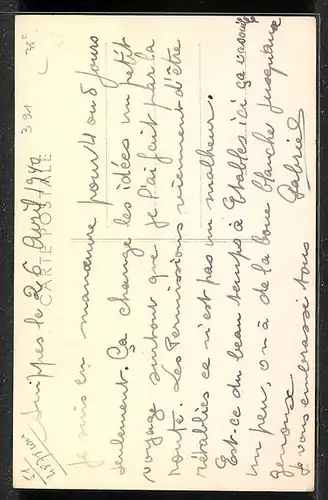 CARTE POSTALE
Suippes le 26 Avril 1940
Je suis en manœuvre pour 4 ou 5 jours
seulement. Ça change les idées un petit
voyage surtout que je l'ai fait par la
route. Les Permissions viennent d'être
rétablies ce n'est pas un malheur.
Est-ce du beau temps à Etables ici ça
un peu, on a de la boue blanche jusqu'aux
genoux.
Je vous embrasse tous
Gabriel
391
35c